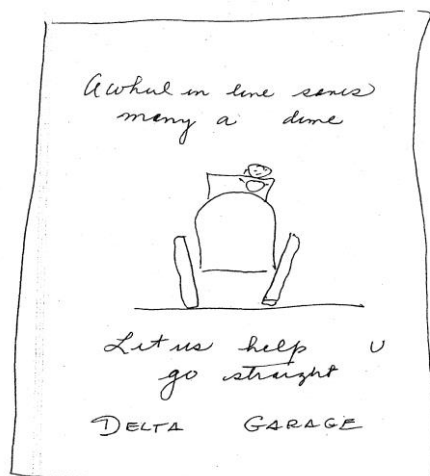 A wheel in line saves
many a dime
Let us help U
go straight
DELTA GARAGE